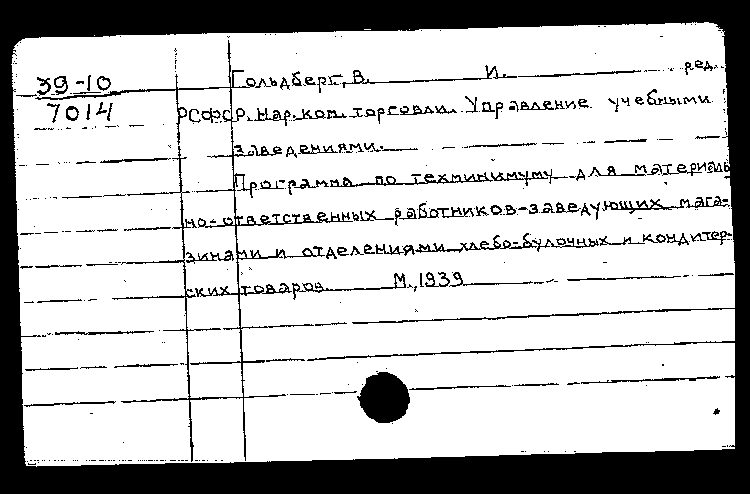 39-10 Гольдберг, В. И. ред.
7014 РСФСР. Нар. ком. торговли. Управление учебными
заведениями.
Программа по техминимуму для материаль
но-ответственных работников-заведующих мага-
зинами и отделениями хлебо-булочных и кондитер-
ских товаров М., 1939